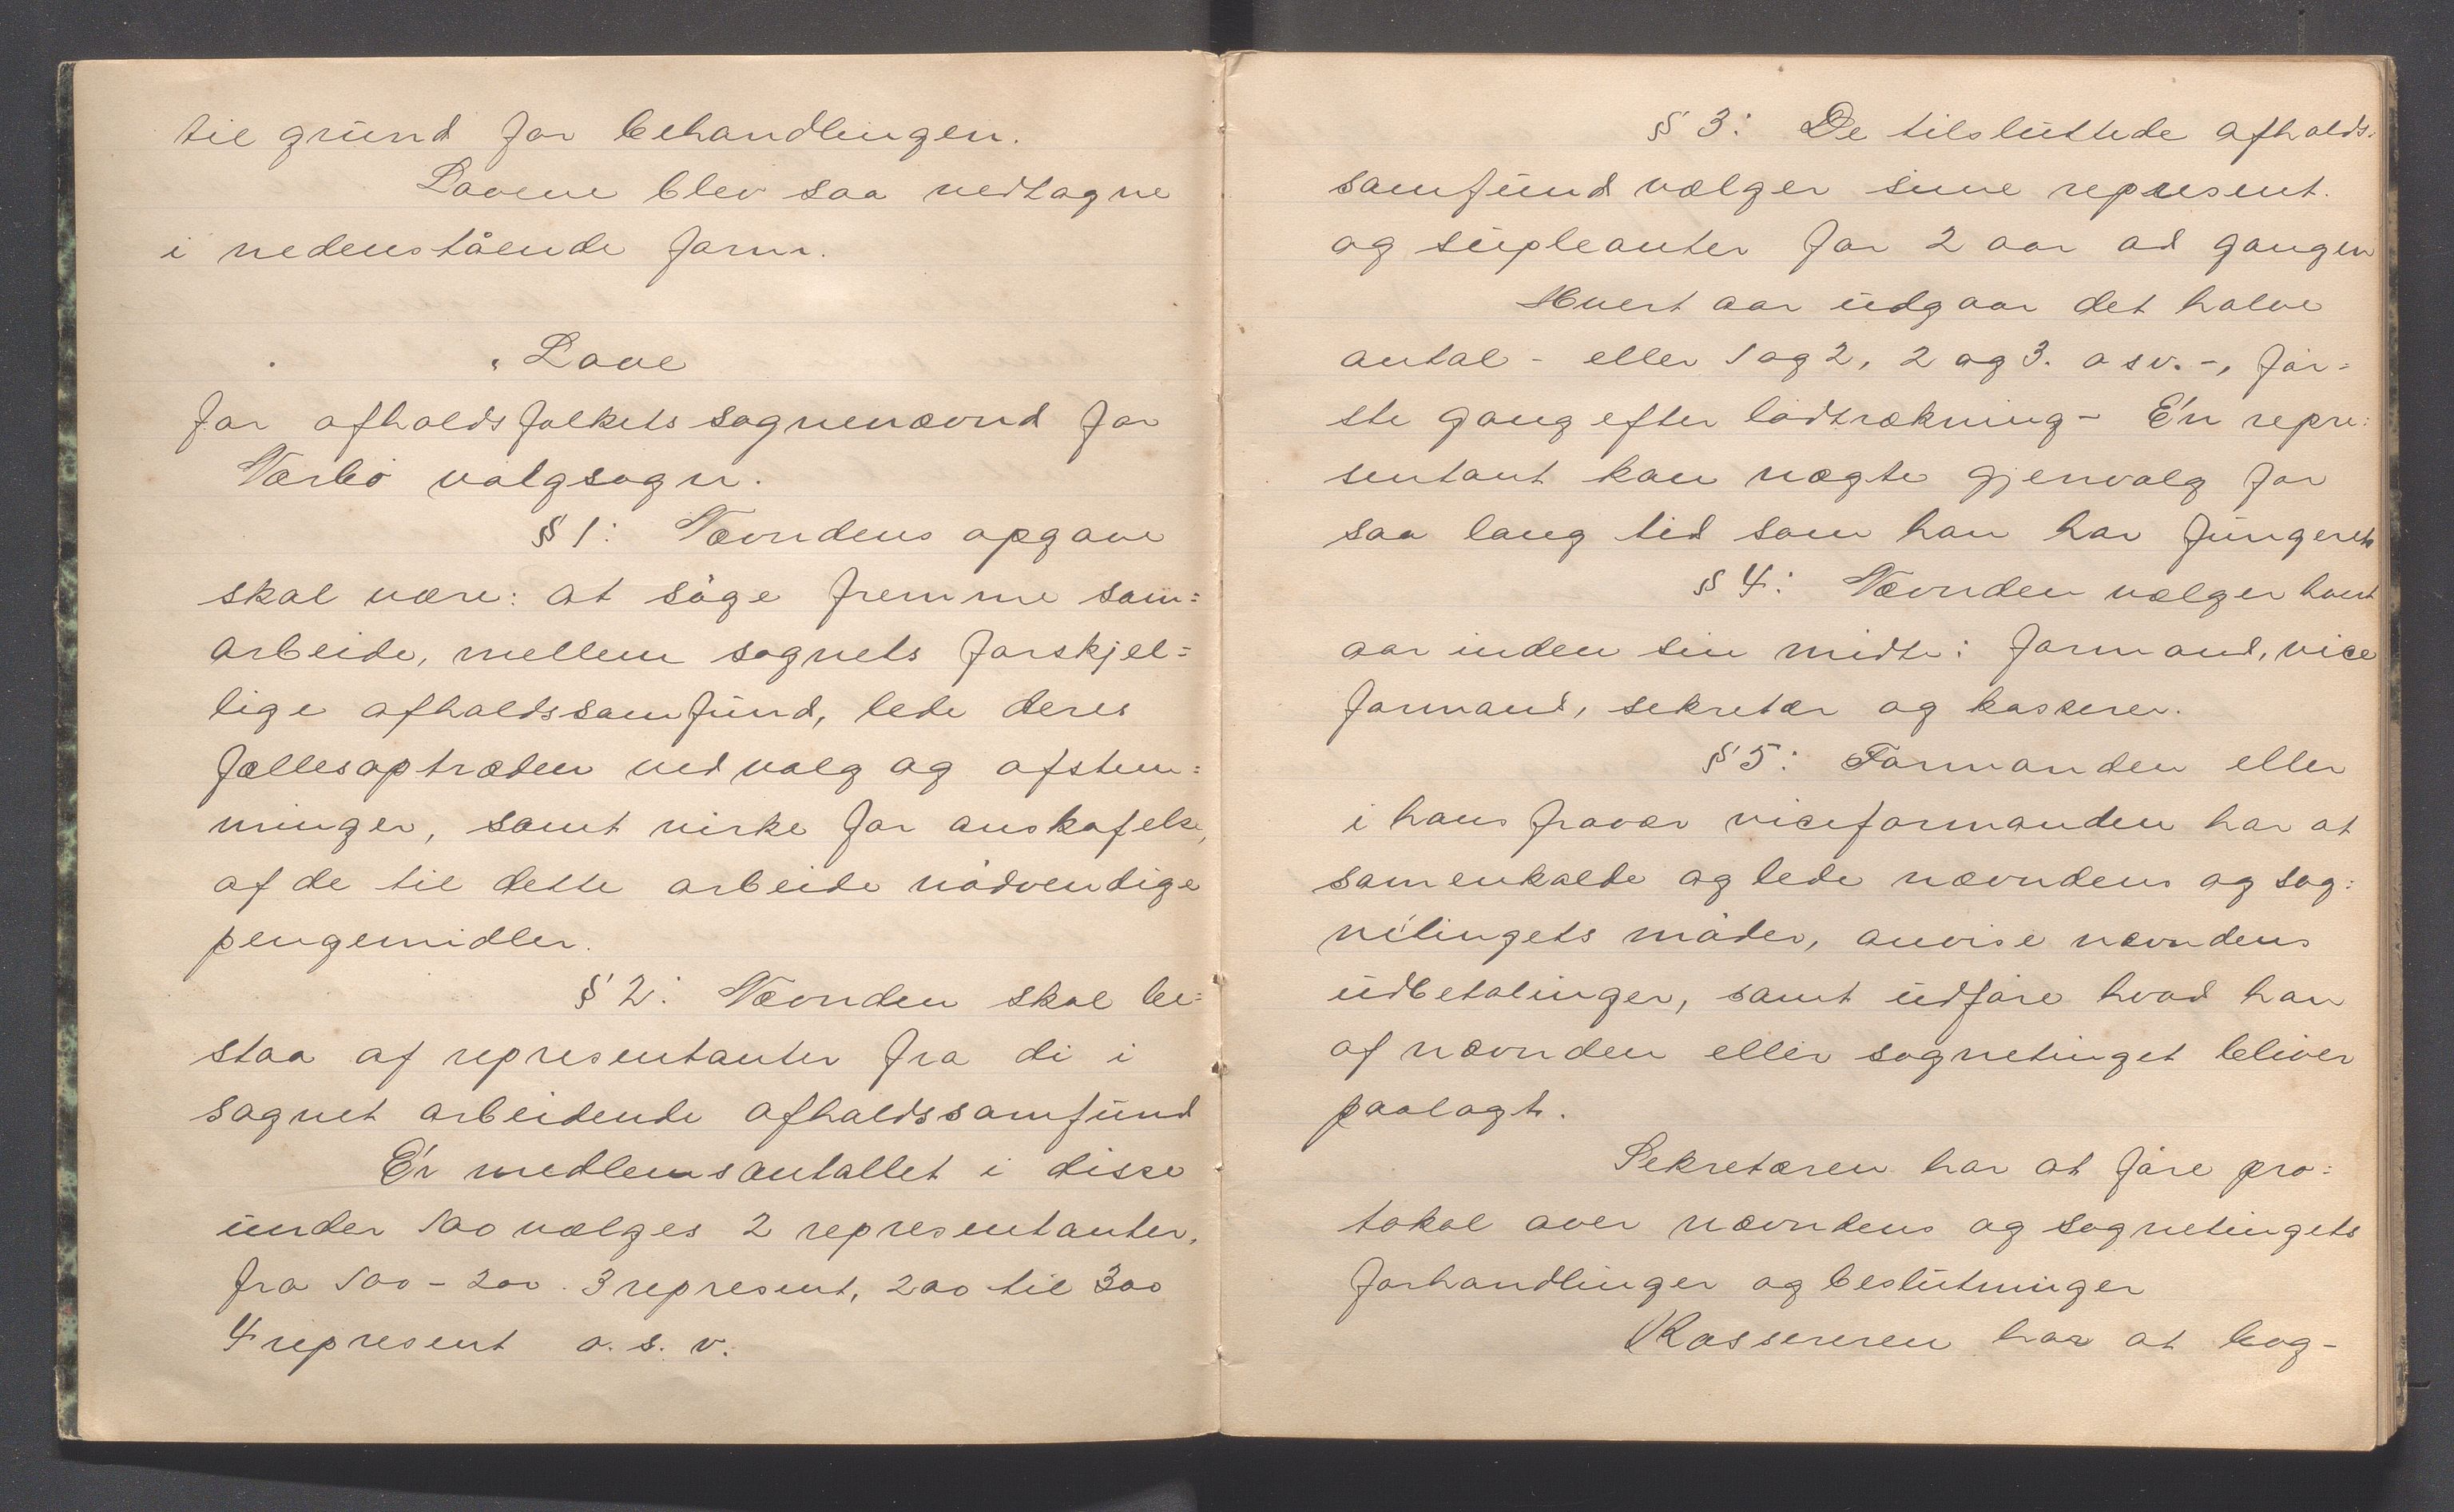 til grund for behandlingen.
Lovene blev saa vedtagne
i nedenstående form.
Love
for afholdsfolkets sognenævnd for
Nærbö valgsogn.
§ 1: Nævndens opgave
skal være: at söge fremme sam=
arbeide, mellem sognets forskjel=
lige afholdssamfund, lede deres
fællesoptræden ved valg og afstem=
ninger, samt virke for anskafelse,
af de til dette arbeide nödvendige
pengemidler.
§ 2: Nævnden skal be=
staa af representanter fra di i
sognet arbeidende afholdssamfund
Er medlemsantallet i disse
under 100 vælges 2 representanter,
fra 100 - 200. 3 represent, 200 til 300
4 represent o. s. v.
§ 3: De tilsluttede afholds=
samfund vælger sine represent.
og supleanter for 2 aar ad gangen
Hvert aar udgaar det halve
antal - eller 1 og 2, 2 og 3. o s v. -, för=
ste gang efter lodtrækning - En repre=
sentant kan nægte gjenvalg for
saa lang tid som han har fungeret
§ 4: Nævnden vælger hvert
aar inden sin midte: formand, vice
formand, sekretær og kasserer.
§ 5: Formanden eller
i hans fravær viceformanden har at
samenkalde og lede nævndens og sog=
netingets möder, anvise nævndens
udbetalinger, samt udföre hvad han
af nævnden eller sognetinget bliver
paalagt.
Sekretæren har at före pro=
tokol over nævndens og sognetingets
forhandlinger og beslutninger
Kassereren har at bog-